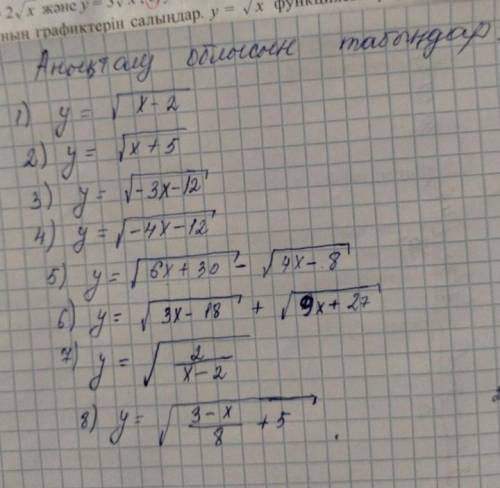 2√x және y = 3√x
ның графиктерін салыңдар. y = √x
Анықталу облысын табыңдар.
1) y = √(x-2)
2) y = √(x+5)
3) y = √(-3x-12)
4) y = √(-4x-12)
5) y = √(6x+30) - √(4x-8)
6) y = √(3x-18) + √(9x+27)
7) y = √(2/(x-2))
8) y = √((3-x)/8 + 5)